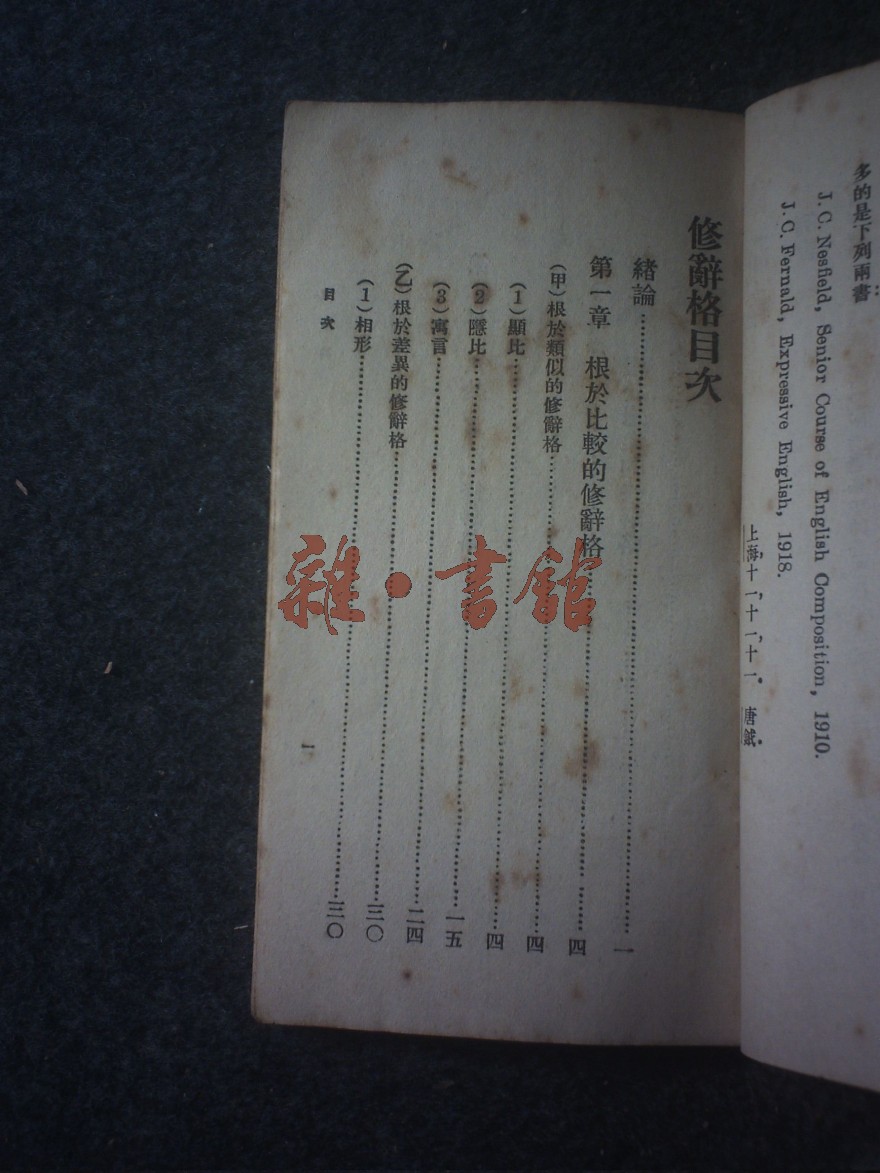 多的是下列兩書
J. C. Nesfield, Senior Course of English Composition, 1910.
J. C. Fernald, Expressive English, 1918.
上海,十一,十一,十一. 唐鉞.
修辭格目次
緒論……一
第一章 根於比較的修辭格……四
(甲)根於類似的修辭格……四
(1)顯比……四
(2)隱比……一五
(3)寓言……二四
(乙)根於差異的修辭格……三〇
(1)相形……三〇
目次
一
雜·書館